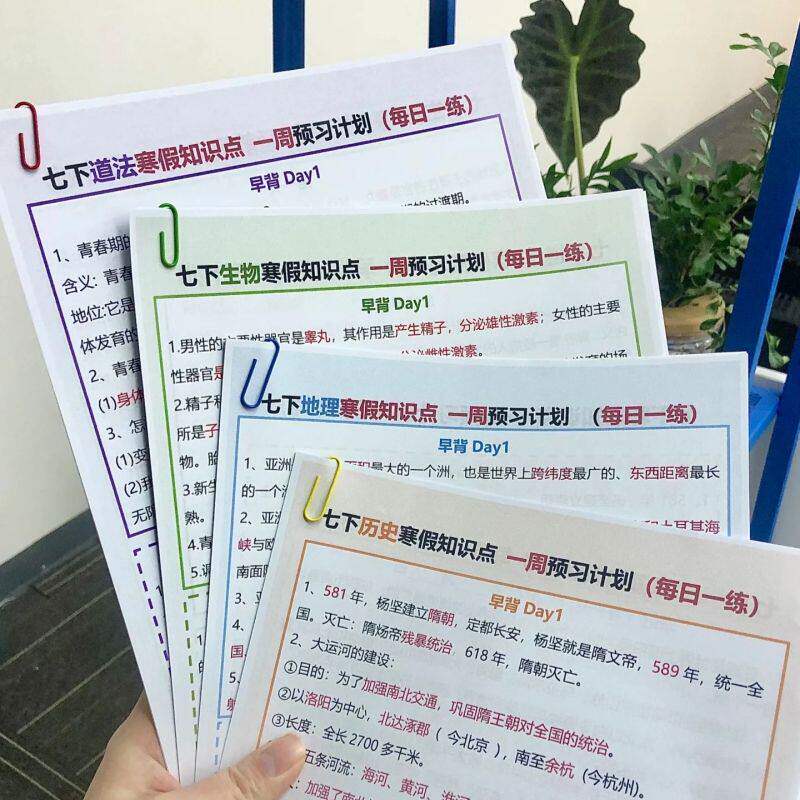 七下道法寒假知识点 一周预习计划（每日一练）
早背 Day1
的过渡期。
1、青春期的
含义: 青春
地位:它是
体发育的
2、青春
(1)身体
3、怎
(1)变
(2)我
无限
七下生物寒假知识点 一周预习计划（每日一练）
早背 Day1
1.男性的主要性器官是睾丸，其作用是产生精子，分泌雄性激素；女性的主要
性器官是 分泌雌性激素。
2.精子和
所是子
物。胎
3.新生
熟。
4.青
5.调
七下地理寒假知识点 一周预习计划 （每日一练）
早背 Day1
1、亚洲 面积最大的一个洲，也是世界上跨纬度最广的、东西距离最长
的一个洲
2、亚洲 和土耳其海
峡与欧
南面隔
3、亚
4、
国
5、
射
七下历史寒假知识点 一周预习计划（每日一练）
早背 Day1
1、581 年，杨坚建立隋朝，定都长安，杨坚就是隋文帝，589 年，统一全
国。灭亡：隋炀帝残暴统治 618 年，隋朝灭亡。
2、大运河的建设：
①目的：为了加强南北交通，巩固隋王朝对全国的统治。
②以洛阳为中心，北达涿郡（ 今北京 ），南至余杭（今杭州）。
③长度：全长 2700 多千米。
五条河流：海河、黄河、淮河
加强了南北